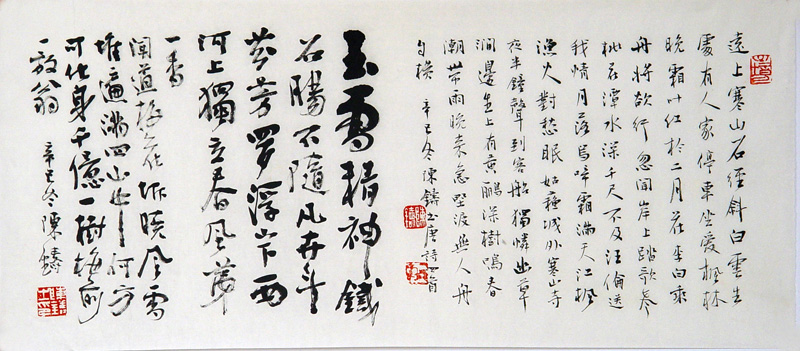 遠上寒山石徑斜白雲生
處有人家停車坐愛楓林
晚霜叶红於二月花李白乘
舟將欲行忽聞岸上踏歌聲
桃花潭水深千尺不及汪倫送
我情月落烏啼霜滿天江楓
漁火對愁眠姑蘇城外寒山寺
夜半鐘聲到客船獨憐幽草
澗邊生上有黃鸝深樹鳴春
潮帶雨晚来急野渡無人舟
自橫 辛巳冬陳鑄书唐詩四首
玉雪精神鐵
石腸不隨凡卉鬥
芬芳罗浮山下西
河上獨立春風第
一香
聞道梅花坼曉風雪
堆遍滿四山中何方
可化身千億一樹梅前
一放翁 辛巳冬陳鑄